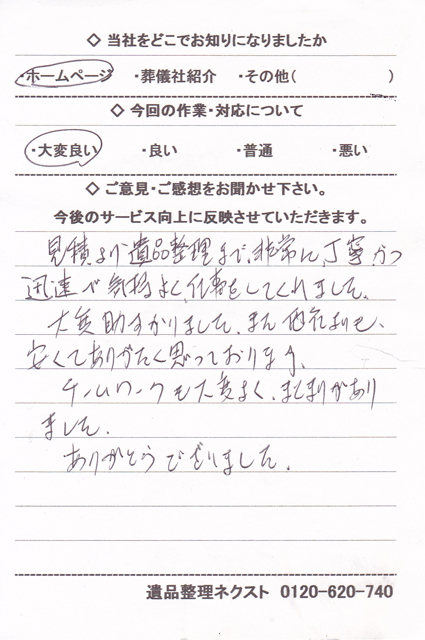 ◇ 当社をどこでお知りになりましたか
・ホームページ ・葬儀社紹介 ・その他( )
◇ 今回の作業・対応について
・大変良い ・良い ・普通 ・悪い
◇ ご意見・ご感想をお聞かせ下さい。
今後のサービス向上に反映させていただきます。
見積より遺品整理まで、非常に、丁寧かつ
迅速で気持よく、仕事をしてくれました。
大変助かりました、また他社よりも、
安くてありがたく思っております。
チームワークも大変よく、まとまりがあり
ました。
ありがとうございました。
遺品整理ネクスト 0120-620-740